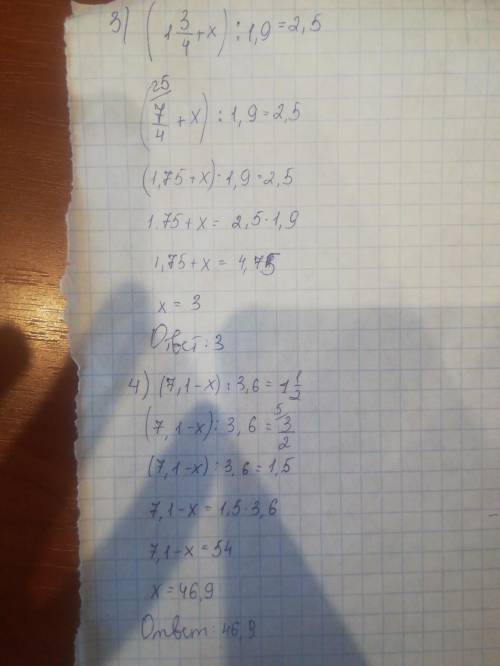 3) (1 3/4 + x) : 1,9 = 2,5
25
(7/4 + x) : 1,9 = 2,5
(1,75 + x) : 1,9 = 2,5
1.75 + x = 2,5 · 1,9
1,75 + x = 4,75
x = 3
Ответ: 3
4) (7,1 - x) : 3,6 = 1 1/2
5
(7,1 - x) : 3,6 = 3/2
(7,1 - x) : 3,6 = 1,5
7,1 - x = 1,5 · 3,6
7,1 - x = 54
x = 46,9
Ответ: 46,9